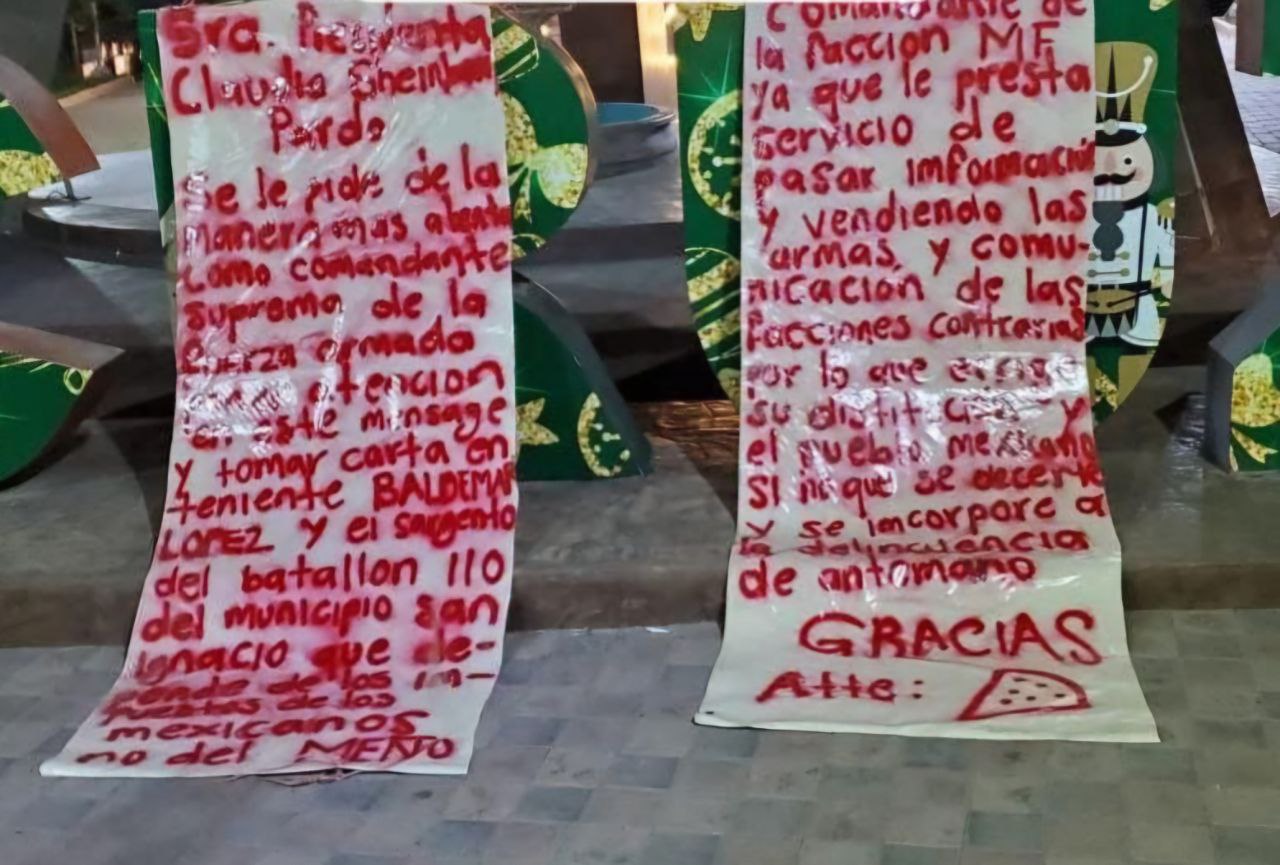 Sra. Presidenta
Claudia Sheinbaum
Pardo
Se le pide de la
manera mas atenta
como comandante
suprema de la
fuerza armada
atencion
en este mensage
y tomar carta en
teniente BALDEMAR
LOPEZ y el sargento
del batallon 110
del municipio San
Ignacio que de-
pende de los im-
puestos de los
mexicanos
no del MENTO
Comandante de
la faccion MF
ya que le presta
servicio de
pasar información
y vendiendo las
armas, y comu-
nicación de las
facciones contrarias
por lo que exige
su
el pueblo mexicano
si no que se decerte
y se incorpore a
la delincuencia
de antemano
GRACIAS
Atte: